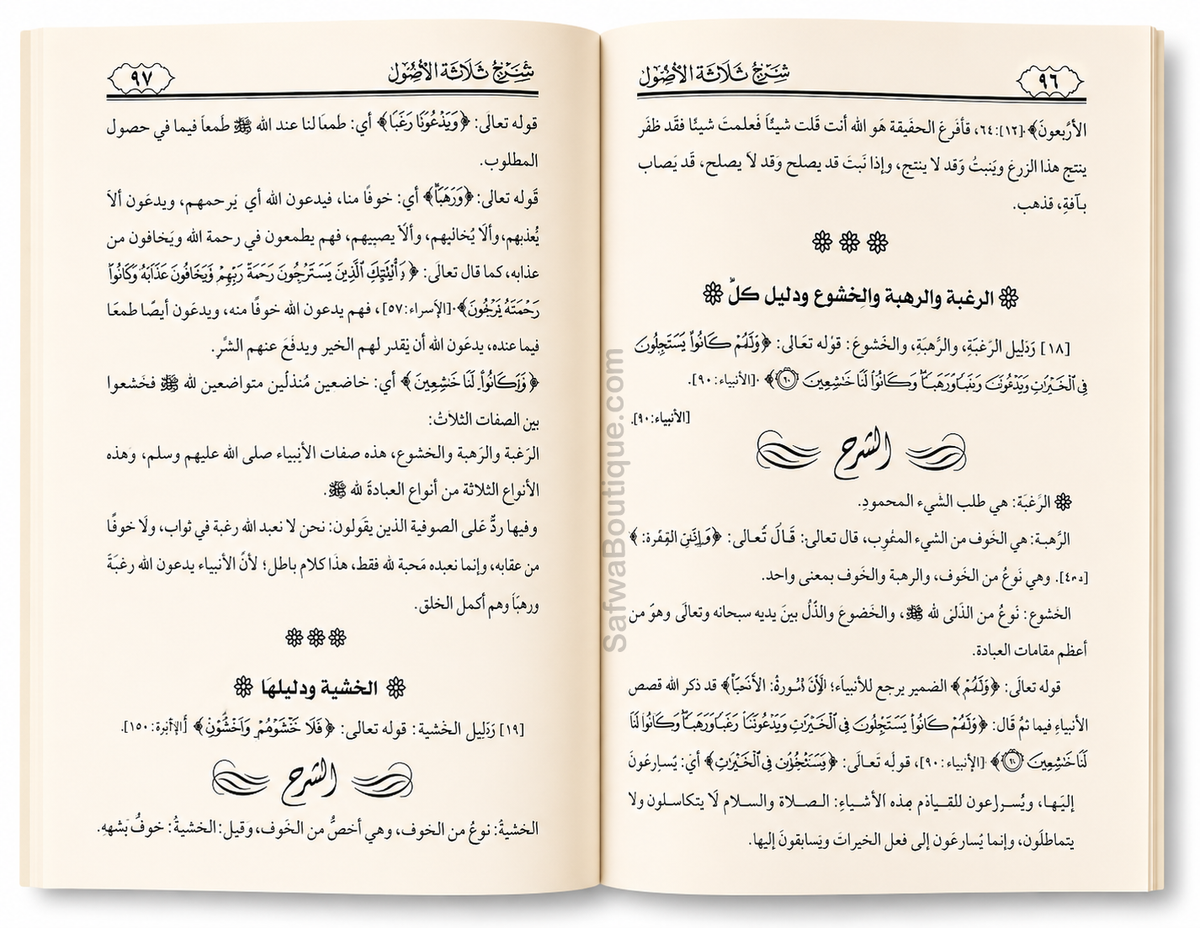 شرح ثلاثة الأصول
٩٦
الأربعون﴾.[١٢]:٦٤، قأفرغ الحفيقة هَو الله أنت قَلت شيئًا فَعلمتَ شيئًا فقَد ظفَر
ينتج هذا الزرغ وَيَنبتُ وَقد لا ينتج، وإذا نَبتَ قد يصلح وَقد لاَ يصلح، قَد يَصاب
بآفةِ، فذهب.
الرغبة والرهبة والخشوع ودليل كلٍّ
[١٨] وَدليل الرّغبَةِ، والرَّهبَةِ، والخَشوعَ: قوْله تعَالى: ﴿وَلَهُمْ كَانُواْ يَسْتَجِلُونَ
فِى الْخَيْرَاتِ وَيَدْعُونَنَا رَغَبًا وَرَهَبًا وَكَانُواْ لَنَا خَاشِعِينَ ٩٠﴾.[الأنبياء:٩٠].
[الأنبياء:٩٠].
الشرح
الرَّغبَة: هي طلب الشَيء المحمودِ.
الرَّهبة: هي الخَوف من الشيء المعُوِب، قال تعالىَ: قَـالَ تُعـالى: ﴿
. وهي نَوعُ من الخَوف، والرهبة والخَوف بمعنى واحد.
الخَشوع: نَوعُ من الذَلىَ لله ﷺ، والخَضوعَ والذُلُ بينَ يديه سبحانه وتعالَى وهوَ من
أعظم مقامات العبادة.
قوله تعالَى: ﴿وَلَهُمْ﴾ الضمير يرجع للأنبياَء؛ قد ذكر الله قصص
الأنبياءِ فيما ثمُ قال: ﴿وَلَهُمْ كَانُواْ يَسْتَجِلُونَ فِى الْخَيْرَاتِ وَيَدْعُونَنَا رَغَبًا وَرَهَبًا وَكَانُواْ لَنَا
لَنَا خَاشِعِينَ ٩٠﴾.[الإنبياء:٩٠]، قولُه تَعـالَى: ﴿ فِى الْخَيْرَاتِ﴾ أيْ: يُسـارِعُونَ
إليَـهـا، ويُسـرِاعون للقيـاذم بهذه الأشيـاءِ: الـصـلاة والسـلام لَا يتكاسـلون ولا
يتماطلَون، وإنما يُسارعَون إلى فعل الخيراتَ ويَسابقونَ إليها.
شرح ثلاثة الأصول
٩٧
قوله تعالَى: ﴿وَيَدْعُونَا رَغَبًا﴾ أي: طمعَا لنا عند الله ﷺ طَمعاَ فيما في حصول
المطلوب.
قَوله تعالى: ﴿وَرَهَبًا﴾ أي: خوفًا منا، فيدعون الله أي يَرحمهم، ويدعَون ألاَ
يُعذبهم،وألَا يُخاليهم، وألاَ يصيبهم، فهم يطمعون في رحمة الله ويَخافون من
عذابه،كما قال تعالَى: ﴿ الَّذِينَ يَسْتَرْجُونَ رَحْمَةَ رَبِّهِمْ وَيَخَافُونَ عَذَابَهُ وَكَانُواْ
رَحْمَتَهُ يَرْجُونَ﴾.[الأسراء:٥٧]، فهم يدعون الله خوفًا منه، ويدعَون أيضًا طمعَا
فيما عنده، يدعَون الله أن يَقدر لهم الخير ويدفَعَ عنهم الشَّرِ.
﴿وَكَانُواْ لَنَا خَاشِعِينَ﴾ أي: خاضعين مُنذلّين متواضعين لله ﷺ فخَشعوا
بين الصفات الثلاثَ:
الرَغبة والرَهبة والخشوع، هذه صفات الأنبياء صلى الله عليهم وسلم، وَهذه
الأنواع الثلاثة من أنواع العبادةَ لله ﷺ.
وفيها ردٌّ عَلى الصوفية الذين يقَولون: نحن لا نعبد الله رغبة في ثواب، ولَا خوفًا
من عقابه، وإنما نعبده مَحبة لله فقط، هذَا كلام باطل؛ لأنّ الأنبياء يدعون الله رغبَةَ
ورهبَاَ وهم أكمل الخلق.
الخشية ودليلهَا
[١٩] وَدليل الخَشية: قوله تعالى: ﴿فَلَا تَخْشَوْهُمْ وَاخْشَوْنِ﴾ :١٥٠].
الشرح
الخشيةُ: نوعُ من الخوف، وهي أخصُّ من الخَوف، وَقيل: الخشيةُ: خوفُ بَشهِهِ.
SafwaBoutique.com